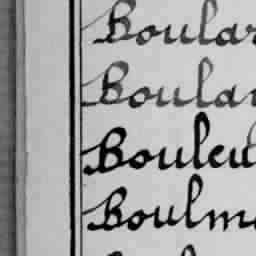 Boular
Boular
Bouleu
Boulm